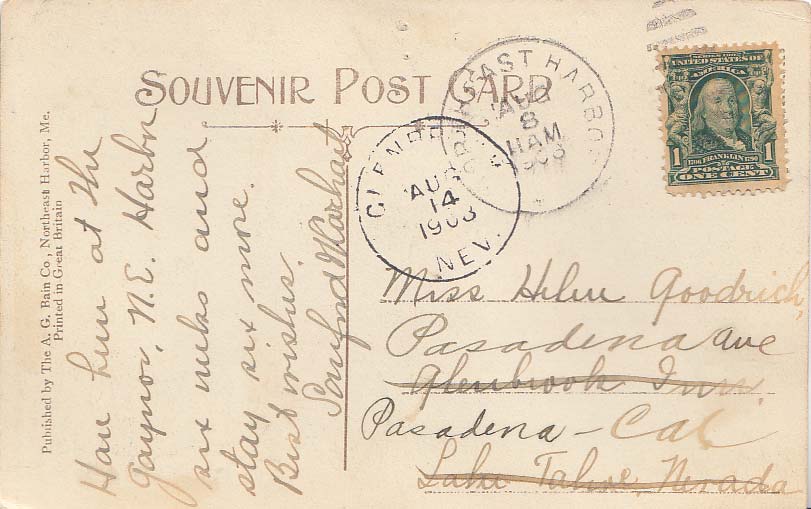 SOUVENIR POST CARD
Published by The A. G. Bain Co., Northeast Harbor, Me.
Printed in Great Britain
Have been at the
Gaynor, N.E. Harbor
six weeks and
stay six more.
Best wishes.
GLENBROOK
AUG
14
1908
NEV.
NORTHEAST HARBOR
AUG
8
11AM
1908
SERIES 1902
UNITED STATES OF
AMERICA
1 1706 FRANKLIN 1790 1
POSTAGE
ONE CENT
Miss Helen Goodrich,
Pasadena Ave
Glenbrook Inn
Pasadena - Cal
Lake Tahoe, Nevada